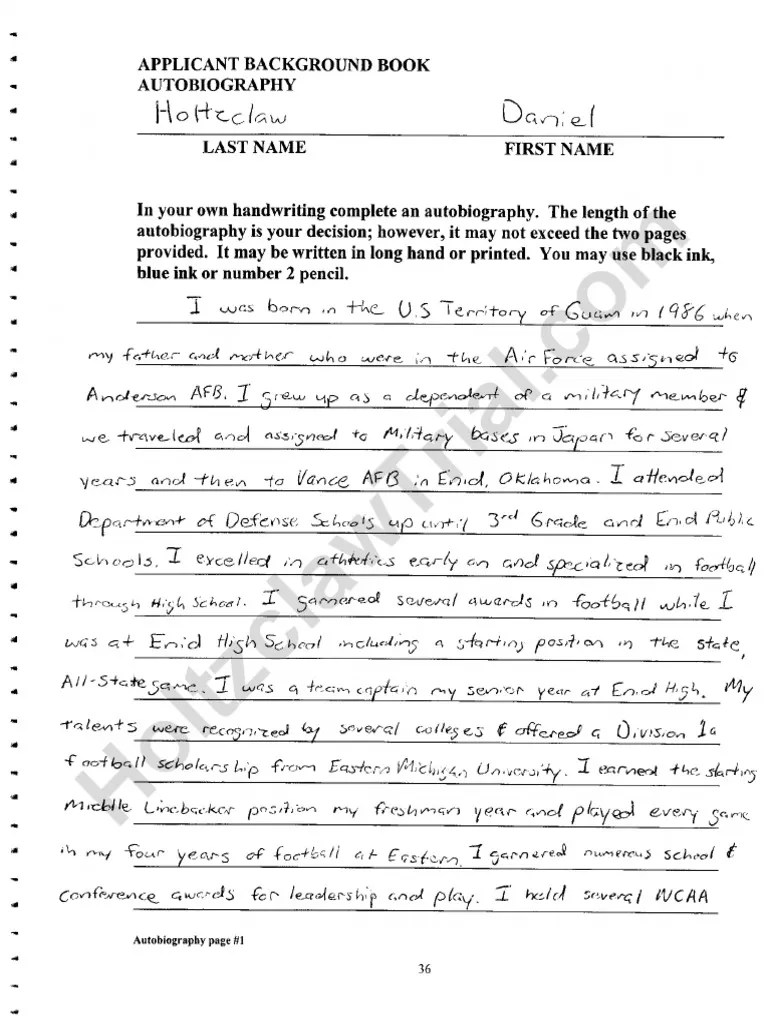 APPLICANT BACKGROUND BOOK
AUTOBIOGRAPHY
Holtzclaw Daniel
LAST NAME FIRST NAME
In your own handwriting complete an autobiography. The length of the
autobiography is your decision; however, it may not exceed the two pages
provided. It may be written in long hand or printed. You may use black ink,
blue ink or number 2 pencil.
I was born in the U.S Territory of Guam in 1986 when
my father and mother who were in the Air Force assigned to
Anderson AFB. I grew up as a dependent of a military member &
we traveled and assigned to Military bases in Japan for several
years and then to Vance AFB in Enid, Oklahoma. I attended
Department of Defense Schools up until 3rd Grade and Enid Public
Schools. I excelled in athletics early on and specialized in football
through High School. I garnered several awards in football while I
was at Enid High School including a starting position in the state,
All-State game. I was a team captain my senior year at Enid High. My
talents were recognized by several colleges & offered a Division 1a
football scholarship from Eastern Michigan University. I earned the starting
Middle Linebacker position my freshman year and played every game
in my four years of football at Eastern. I garnered numerous school &
Conference awards for leadership and play. I held several NCAA
Autobiography page #1
36
HoltzclawTrial.com